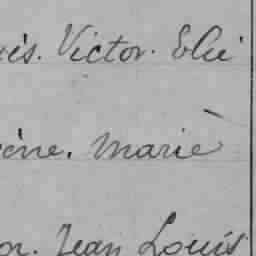 is. Victor. Elie
ine. Marie
or. Jean Louis